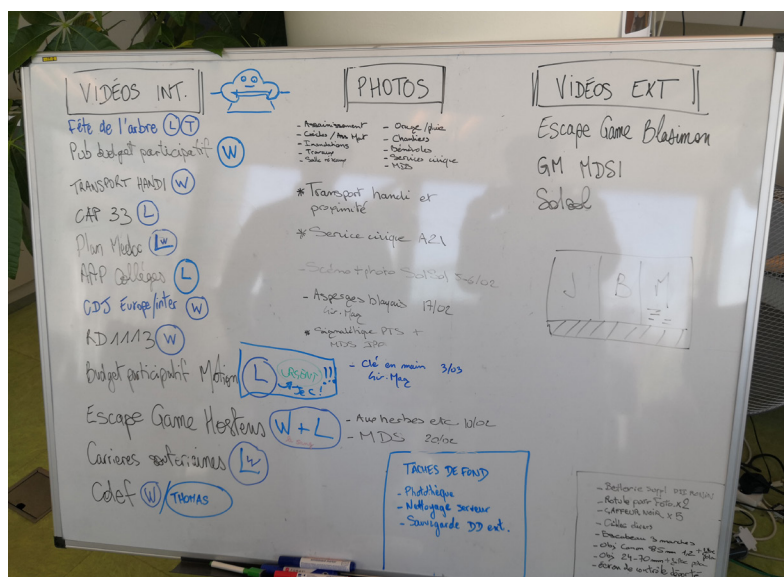 VIDÉOS INT.
Fête de l'arbre L T
Pub budget participatif W
TRANSPORT HANDI W
CAP 33 L
Plan Médoc LW
AAP Collèges L
CDJ Europe/inter W
RD1113 W
Budget participatif Motion L URGENT !!
Escape Game Hostens W + L
Carrières souterraines LW
Cdef W / THOMAS
PHOTOS
- Assainissement
- Inondations
- Travaux
- Chantiers
- Bénévoles
- Service civique
- MDS
* Transport handi et
proximité
* Service civique A21
5-6/02
- Asperges blayais 17/02
Gir. Mag
* Signalétique PTS +
MDS
- Clé en main 3/03
Gir. Mag
- Aux herbes etc 10/02
- MDS 20/02
TÂCHES DE FOND
- Photothèque
- Nettoyage serveur
- Sauvegarde DD ext.
VIDÉOS EXT
Escape Game Blasimon
GM MDSI
Solsol
J B M
- Rotule pour x2
- GAFFEUR NOIR x 5
- Câbles divers
- Escabeau 3 marches
- Obj Canon 85mm 1.2
- Obj 24-70mm
- écran de contrôle